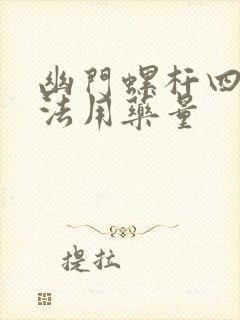 幽门螺杆四
法用药量
提拉